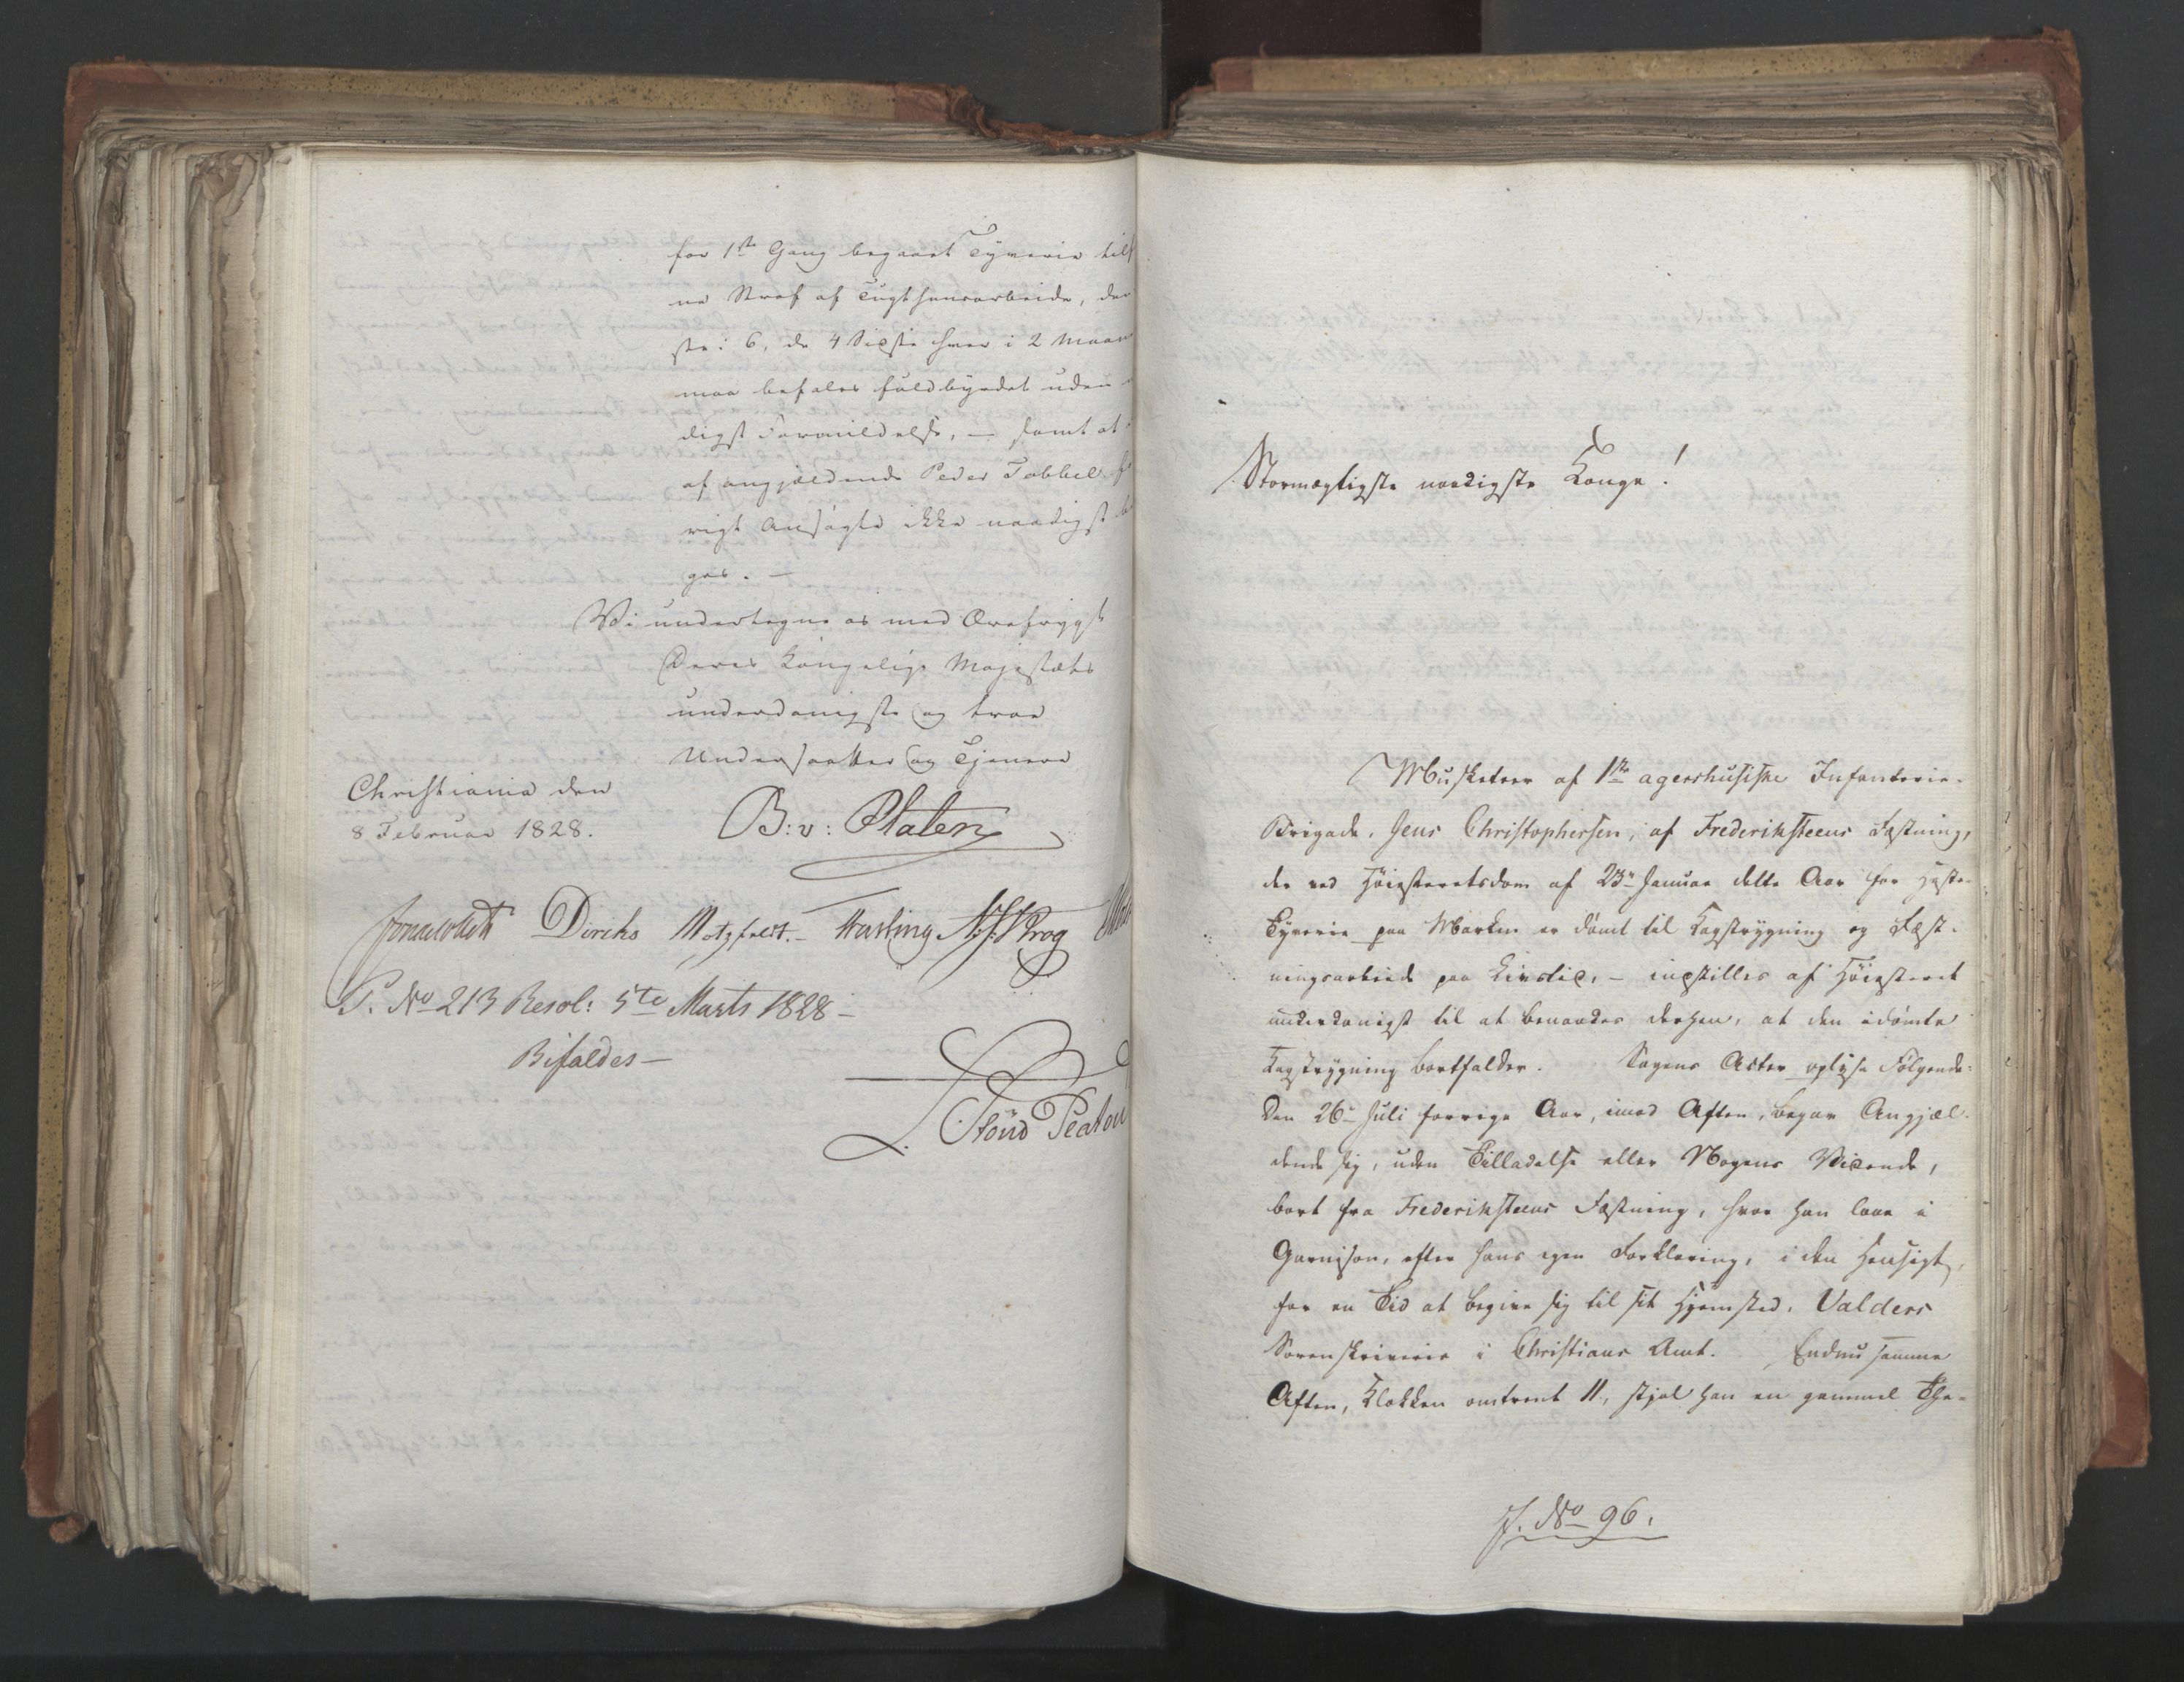 for 1ste Gang begaaet Tyverie til
ne Straf af Tugthuusarbeide, den
ste i 6, de 4 Sidste hver i 2 Maan
maa befales fuldbyrdet uden
digst Formildelse, — samt at
af angjældende Peder Tobbel
rigt Ansøgte ikke naadigst
ges. —
Vi undertegne os med Ærefrygt
Deres Kongelige Majestæts
underdanigste og troe
Undersaatter og Tjenere
Christiania den
8 Februar 1828.
B: v: Platen
Sommerhielm Diriks Motzfeldt. Fasting N. J. Krog
P. No 213 Resol: 5te Marts 1828 —
Bifaldes —
Stormægtigste naadigste Konge!
Musketeer af 1ste agershusiske Infanterie-
Brigade, Jens Christophersen, af Frederiksteens Fæstning,
der ved Høiesteretsdom af 23de Januar dette Aar for Heste-
Tyverie paa Marken er dømt til Kagstrygning og Fæst-
ningsarbeide paa Livstid, — indstilles af Høiesteret
underdanigst til at benaades derhen, at den idømte
Kagstrygning bortfalder. Sagens Acter oplyse Følgende:
Den 26de Juli forrige Aar, imod Aften, begav Angjæl-
dende sig, uden Tilladelse eller Nogens Vidende,
bort fra Frederiksteens Fæstning, hvor han laae i
Garnison, efter hans egen Forklaring, i den Hensigt,
for en Tid at begive sig til sit Hjemsted, Valders
Sorenskriverie i Christians Amt. Endnu samme
Aften, Klokken omtrent 11, stjal han en gammel
J. No 96.